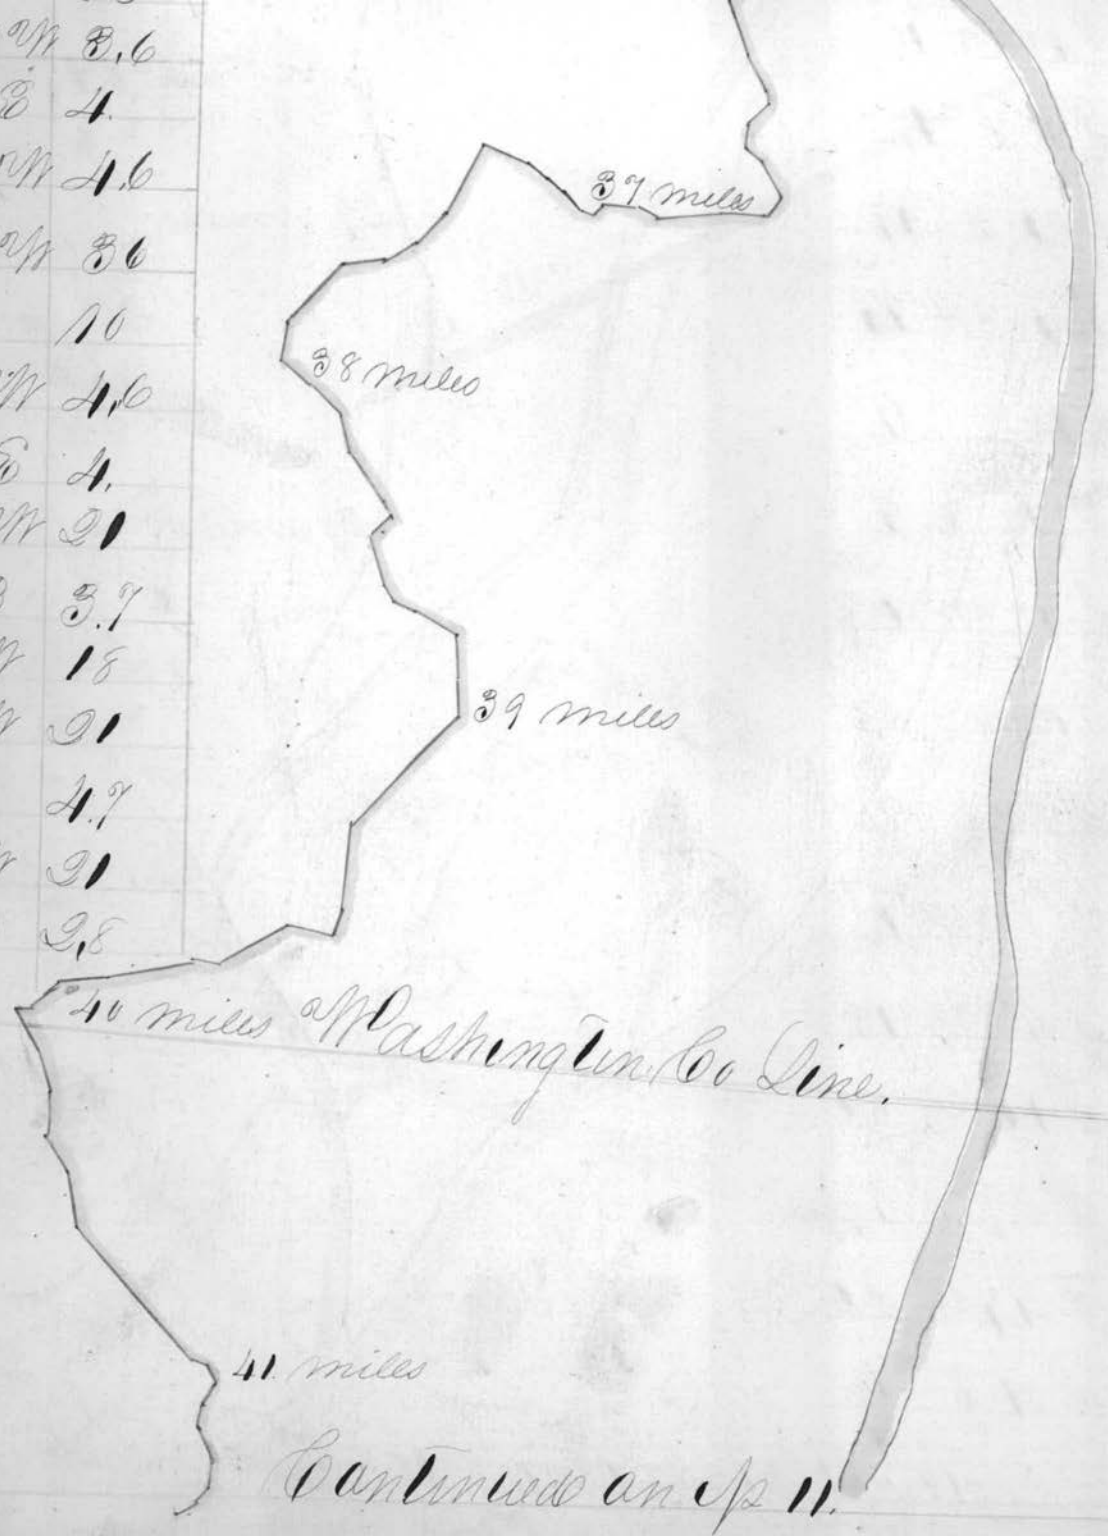 W 3.6
E 4.
W 4.6
W 36
10
W 4.6
E 4.
W 21
3.7
W 18
W 21
4.7
W 21
2.8
37 miles
38 miles
39 miles
40 miles Washington Co Line.
41 miles
Continued on p 11.